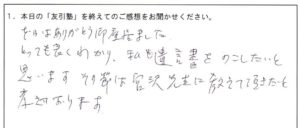 1. 本日の「友引塾」を終えてのご感想をお聞かせください。
ありがとう御座居ました
とっても良くわかり、私も遺言書をのこしたいと
思います その節は宮沢先生に教えて頂きたいと
考えております